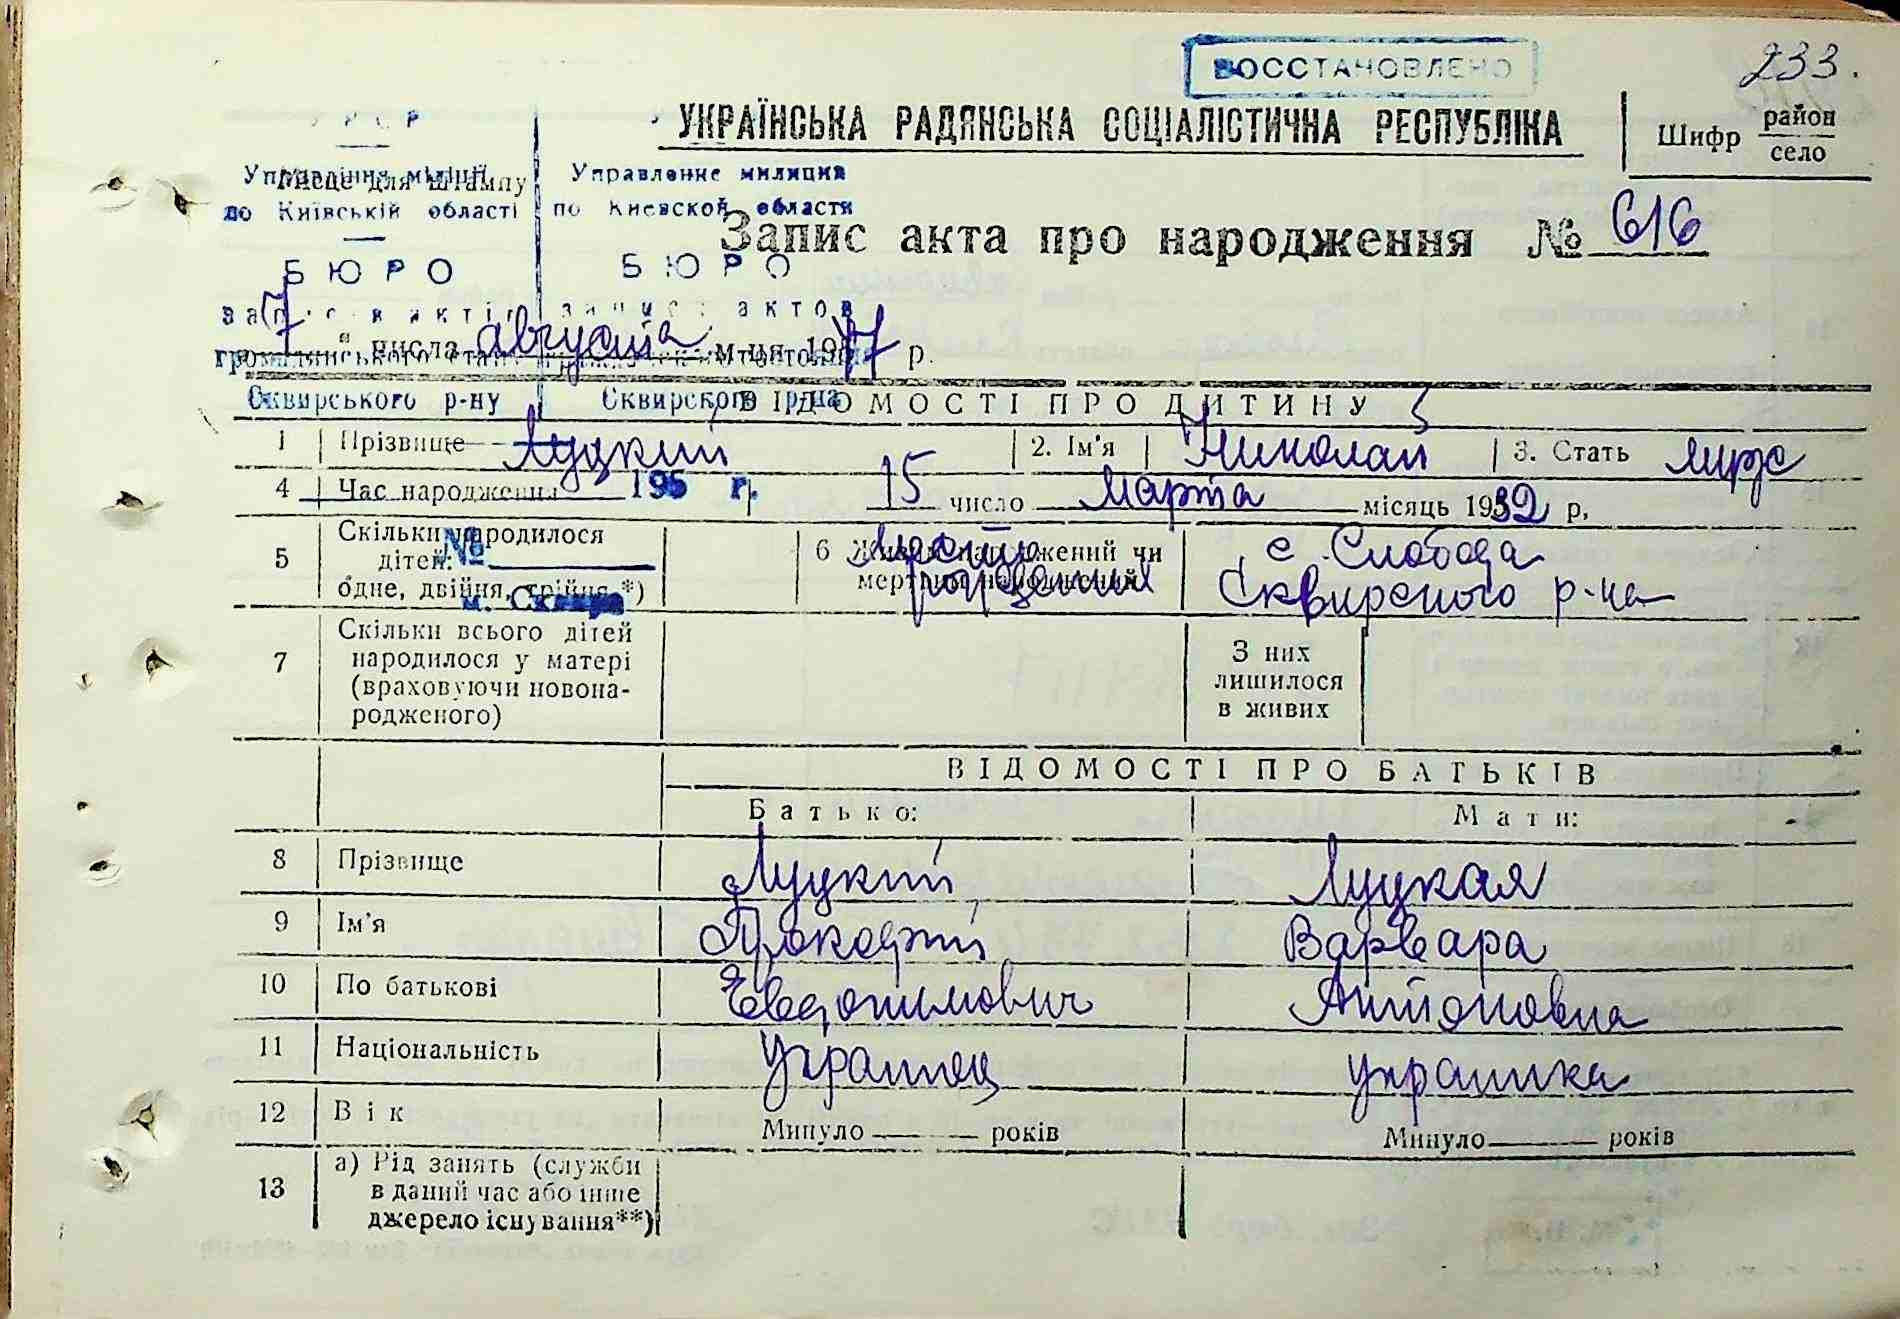 ВОССТАНОВЛЕНО
233.
УКРАЇНСЬКА РАДЯНСЬКА СОЦІАЛІСТИЧНА РЕСПУБЛІКА
Шифр район
село
Управління міліції Управление милиции
Місце для штампу
по Київській області по Киевской области
Запис акта про народження № 616
БЮРО БЮРО
записів актів записи актов
7 " числа августа м-ця 1957 р.
громадянського стану гражданского состояния
Сквирського р-ну Сквирского р-на
ВІДОМОСТІ ПРО ДИТИНУ
1 Прізвище Луцкий 2. Ім'я Николай 3. Стать муж
4 Час народження 15 число марта місяць 1932 р.
195 г.
5 Скільки народилося дітей: одне, двійня, трійня *)
№
м. Сквира
6 Живим народжений чи мертвим народжений
место рождения
с. Слобода
Сквирского р-на
7 Скільки всього дітей народилося у матері (враховуючи новонародженого)
З них лишилося в живих
ВІДОМОСТІ ПРО БАТЬКІВ
Батько: Мати:
8 Прізвище Луцкий Луцкая
9 Ім'я Прокофий Варвара
10 По батькові Евдокимович Антоновна
11 Національність украинец украинка
12 Вік Минуло років Минуло років
13 а) Рід занять (служби в даний час або інше джерело існування**)